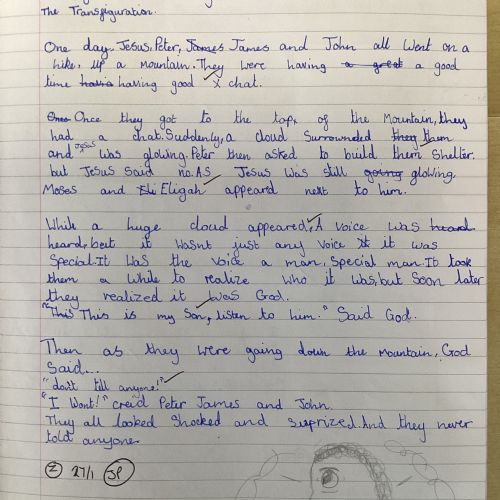 The Transfiguration.
One day, Jesus, Peter, James James and John all went on a
hike, up a mountain. They were having a great a good
time havin having good x chat.
Once Once they got to the top x of the mountain, they
had a chat. Suddenly, a cloud surrounded they them
and Jesus was glowing. Peter then asked to build them shelter.
but Jesus said no. As Jesus was still going glowing,
Moses and Eli Eligah appeared next to him.
While a huge cloud appeared, A voice was heard
heard, but it wasnt just any voice it it was
special. It was the voice a man, special man. It took
them a while to realize who it was, but soon later
they realized it was God.
"This This is my son, listen to him." Said God.
Then as they were going down the mountain, God
said...
"don't tell anyone!"
"I wont!" creid Peter James and John.
They all looked shocked and surprized. And they never
told anyone.
z 27/1 SP